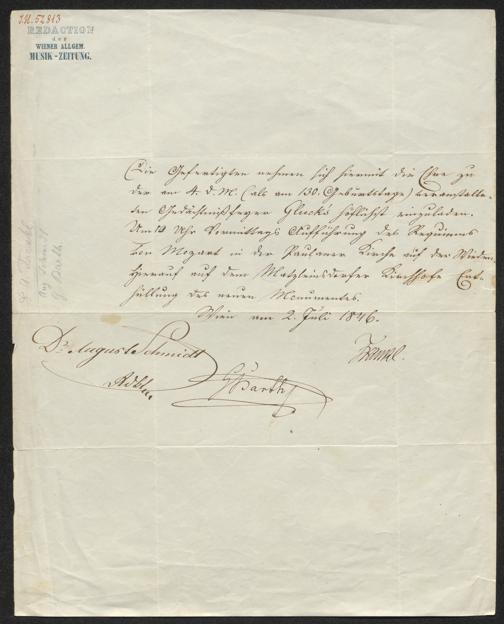 I.N. 52813
REDACTION
der
WIENER ALLGEM.
MUSIK-ZEITUNG.
Die Gefertigten nehmen sich hiermit die Ehre zu
der am 4. d. M. (als am 130. Geburtstage) veranstalte-
den Gedächtnißfeyer Gluck's höflichst einzuladen.
Um 10 Uhr Vormittags Aufführung des Requiems
von Mozart in der Paulaner Kirche auf der Wieden,
hierauf auf dem Matzleinsdorfer Kirchhofe Ent-
hüllung des neuen Monumentes.
Wien am 2. Juli 1846.
Dr. August Schmidt
Frankl.
GBarth
Aug Schmidt
G. Barth